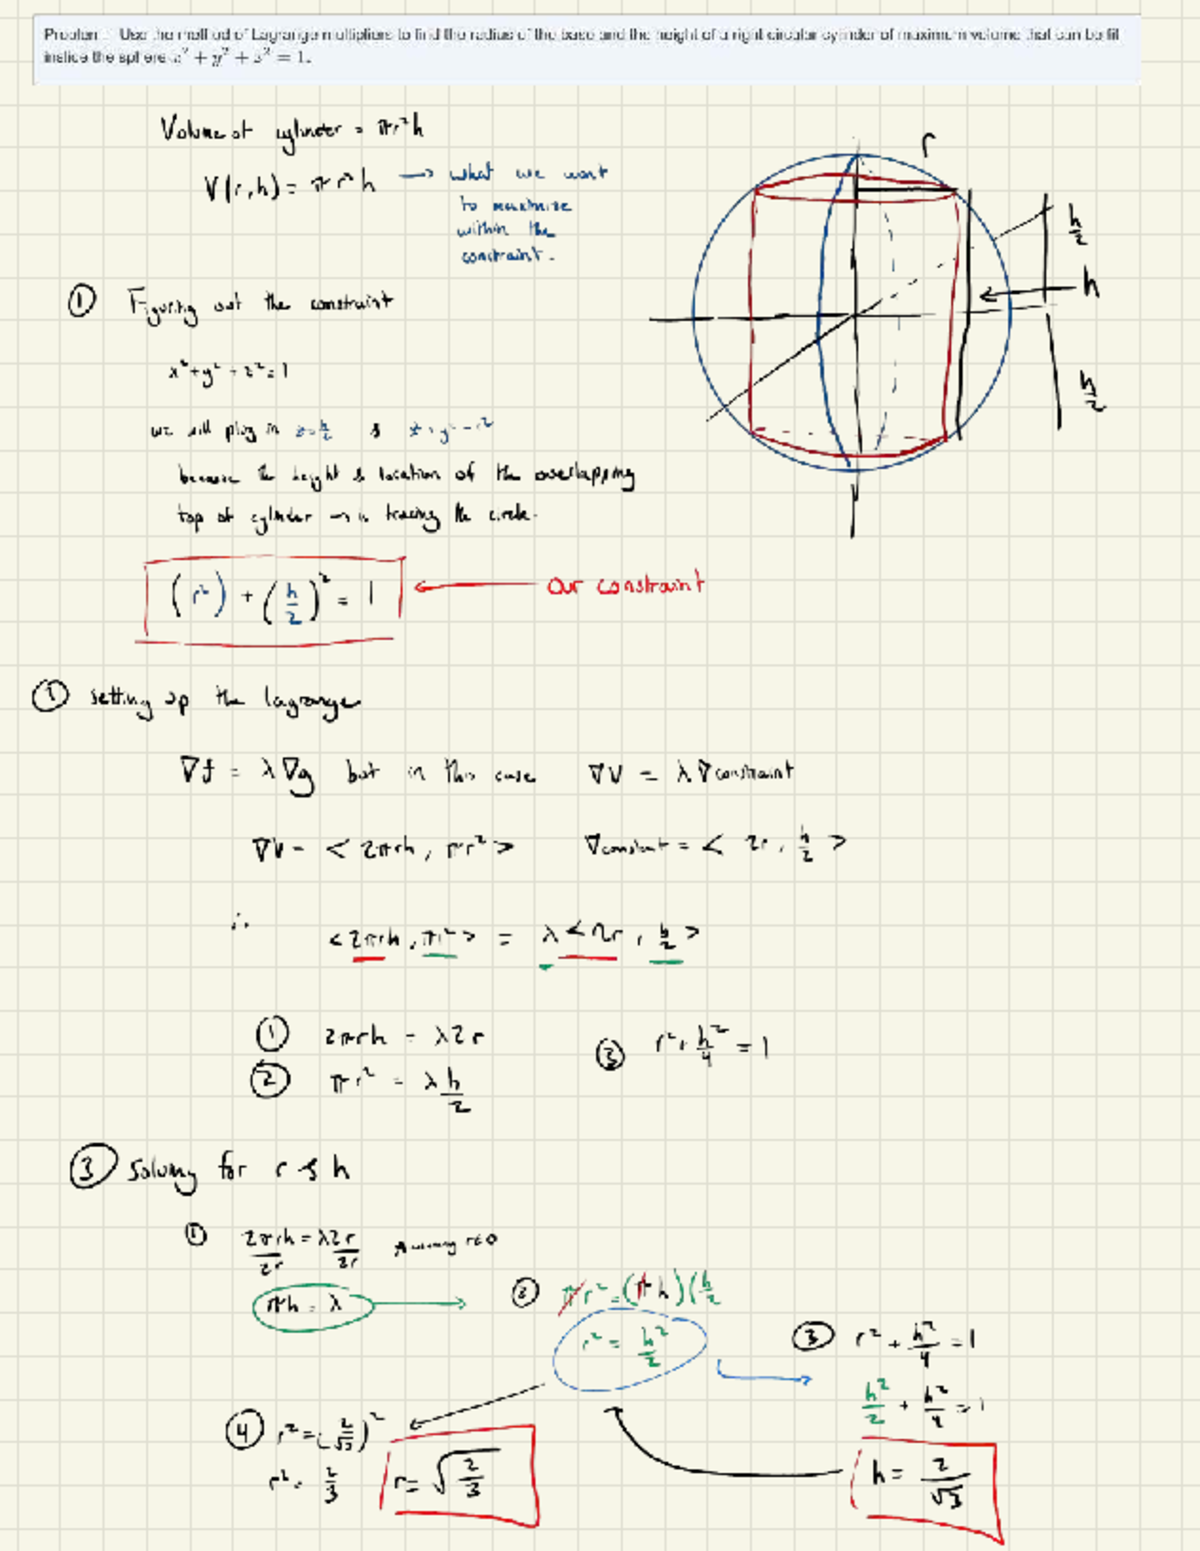 Problem : Use the method of Lagrange multipliers to find the radius of the base and the height of a right circular cylinder of maximum volume that can be fit
inside the sphere x² + y² + z² = 1.
Volume of cylinder = πr²h
V(r,h) = πr²h → what we want
to maximize
within the
constraint.
r
h/2
h
h/2
① Figuring out the constraint
x²+y²+z²=1
we will plug in z=h/2 & x²+y²=r²
because the height & location of the overlapping
top of cylinder → is tracing the circle.
(r²) + (h/2)² = 1 ← our constraint
① setting up the lagrange
∇f = λ∇g but in this case ∇V = λ∇constraint
∇V = < 2πrh, πr² > ∇constraint = < 2r, h/2 >
∴ <2πrh, πr²> = λ<2r, h/2>
① 2πrh = λ2r
② πr² = λh/2
③ r²+h²/4 = 1
③ Solving for r & h
① 2πrh/2r = λ2r/2r Assuming r≠0
πh = λ →
② πr² = (πh)(h/2
r² = h²/2
③ r² + h²/4 = 1
h²/2 + h²/4 = 1
h = 2/√3
④ r² = (2/√3)²
r² = 2/3
r = √(2/3)